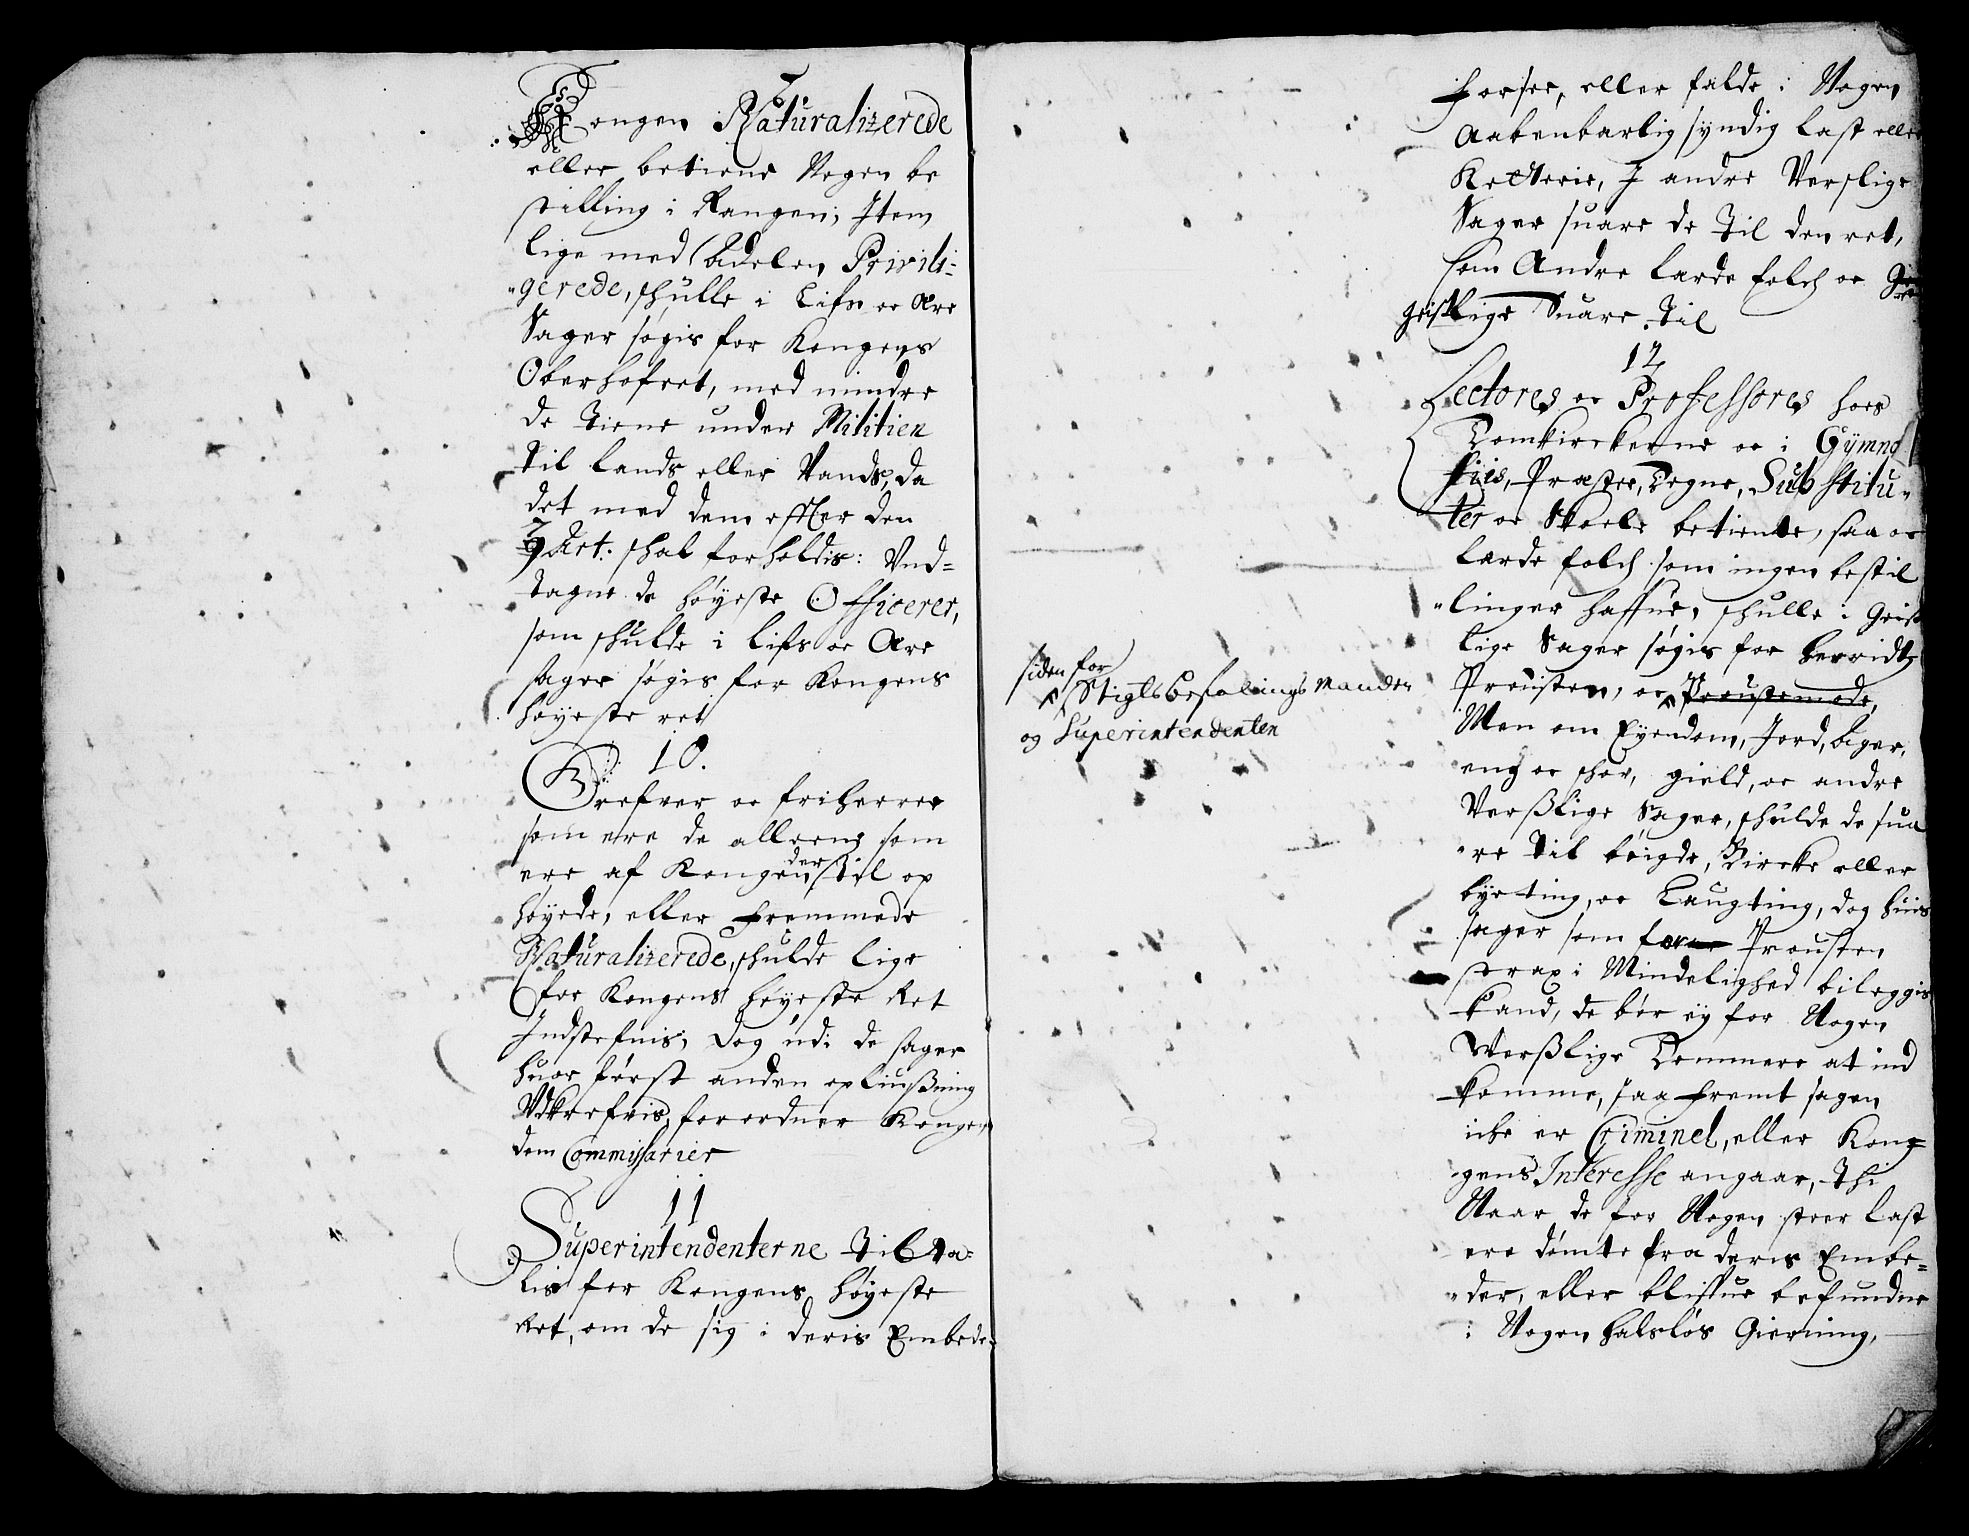 Kongen Naturalizerede
eller betiene Nogen be
stilling i Rangen, Item
lige med Adelen Privili-
gerede, skulle i Lifs oc Ære
Sager søgis for Kongens
Oberhofret, med mindre
de Tiene under Militien
til Lands eller Vands, da
det med dem effter den
9 Art. skal forholdis: Vnd-
tagne de høyeste Officerer,
som skulde i Lifs oc Ære
sager søgis for Kongens
høyeste ret
10.
Grefver oc friherrer
som ere de alleene som
ere af Kongen der til op
høyede, eller fremmede
Naturalizerede, skulde lige
for Kongens høyeste Ret
Indstefnis, dog udi de sager
huor først anden opliusßning
Udkrefvis, forordner Kongen
dem Commissarier
11
Superintendenterne Tilta-
lis for Kongens høyeste
Ret, om de sig i deris Embede
forsee, eller falde i Nogen
Aabenbarlig syndig Last eller
Kætterie, I andre Verslige
Sager suare de Til den ret,
som Andre lærde folch oc
geistlige Suare Til
12
Lectores oc Professores hoes
Domkirckerne oc i Gymna
siis, Præster, Degne, Substitu-
ter oc Skoele betiente, saa oc
lærde folch som ingen bestil
linger haffue, skulle i Geist
lige Sager søgis for herridtz
Prousten, oc Proustemode,
siden for
Stigtsbefalings Manden
og Superintendenten
Men om Eyendom, Jord, ager,
eng oc skov, gield, oc andre
Versßlige Sager, skulde de sua
re til bøigde, Bircke eller
byeting, oc Laugting, dog huis
sager som for Prousten
strax i Mindelighed bileggis
kand, de bør ey for Nogen
Wersßlige Dommere at ind
komme, saa fremt sagen
iche er Criminel, eller Kon-
gens Interesse angaar, Thi
Naar de for Nogen stoer Last
ere dømte fra deris Embe-
der, eller blifue befundne
i Nogen halsløs Gierning,